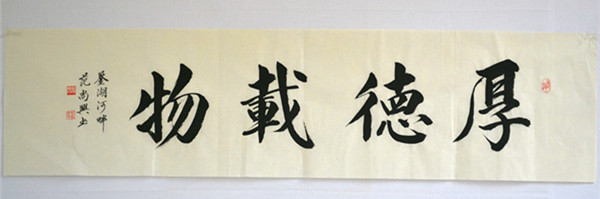 厚德載物
鑒湖河畔
范尚興書